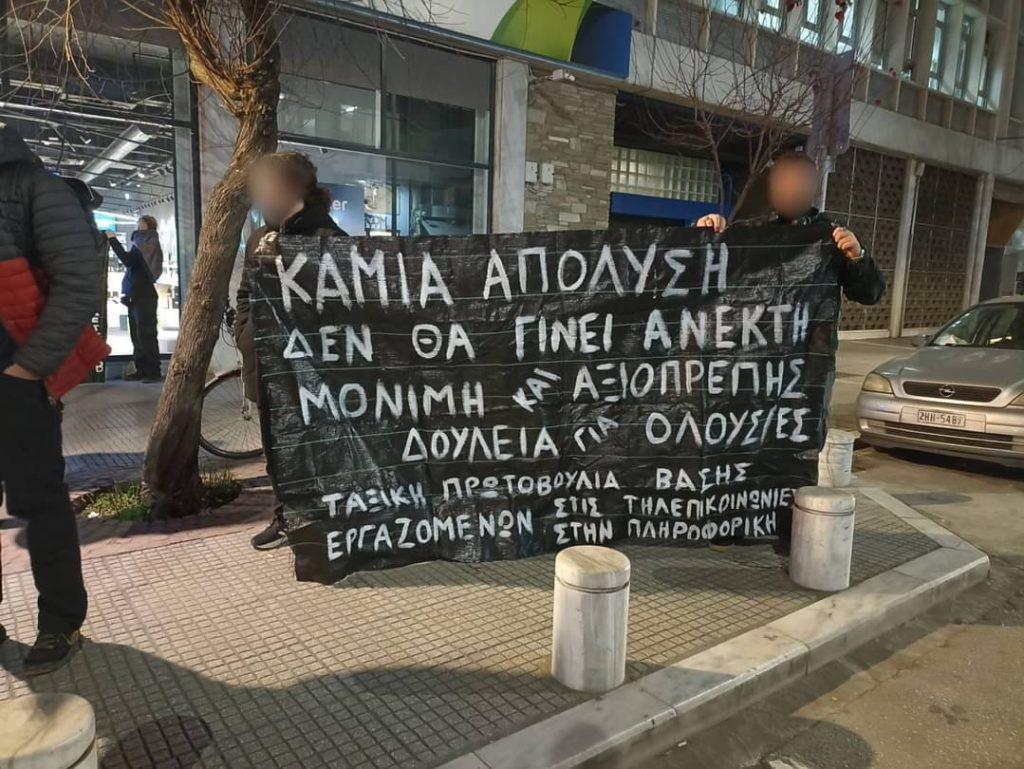 ΚΑΜΙΑ ΑΠΟΛΥΣΗ
ΔΕΝ ΘΑ ΓΙΝΕΙ ΑΝΕΚΤΗ
ΜΟΝΙΜΗ ΚΑΙ ΑΞΙΟΠΡΕΠΗΣ
ΔΟΥΛΕΙΑ ΓΙΑ ΟΛΟΥΣ/ΕΣ
ΤΑΞΙΚΗ ΠΡΩΤΟΒΟΥΛΙΑ ΒΑΣΗΣ
ΕΡΓΑΖΟΜΕΝΩΝ ΣΤΙΣ ΤΗΛΕΠΙΚΟΙΝΩΝΙΕΣ
ΣΤΗΝ ΠΛΗΡΟΦΟΡΙΚΗ